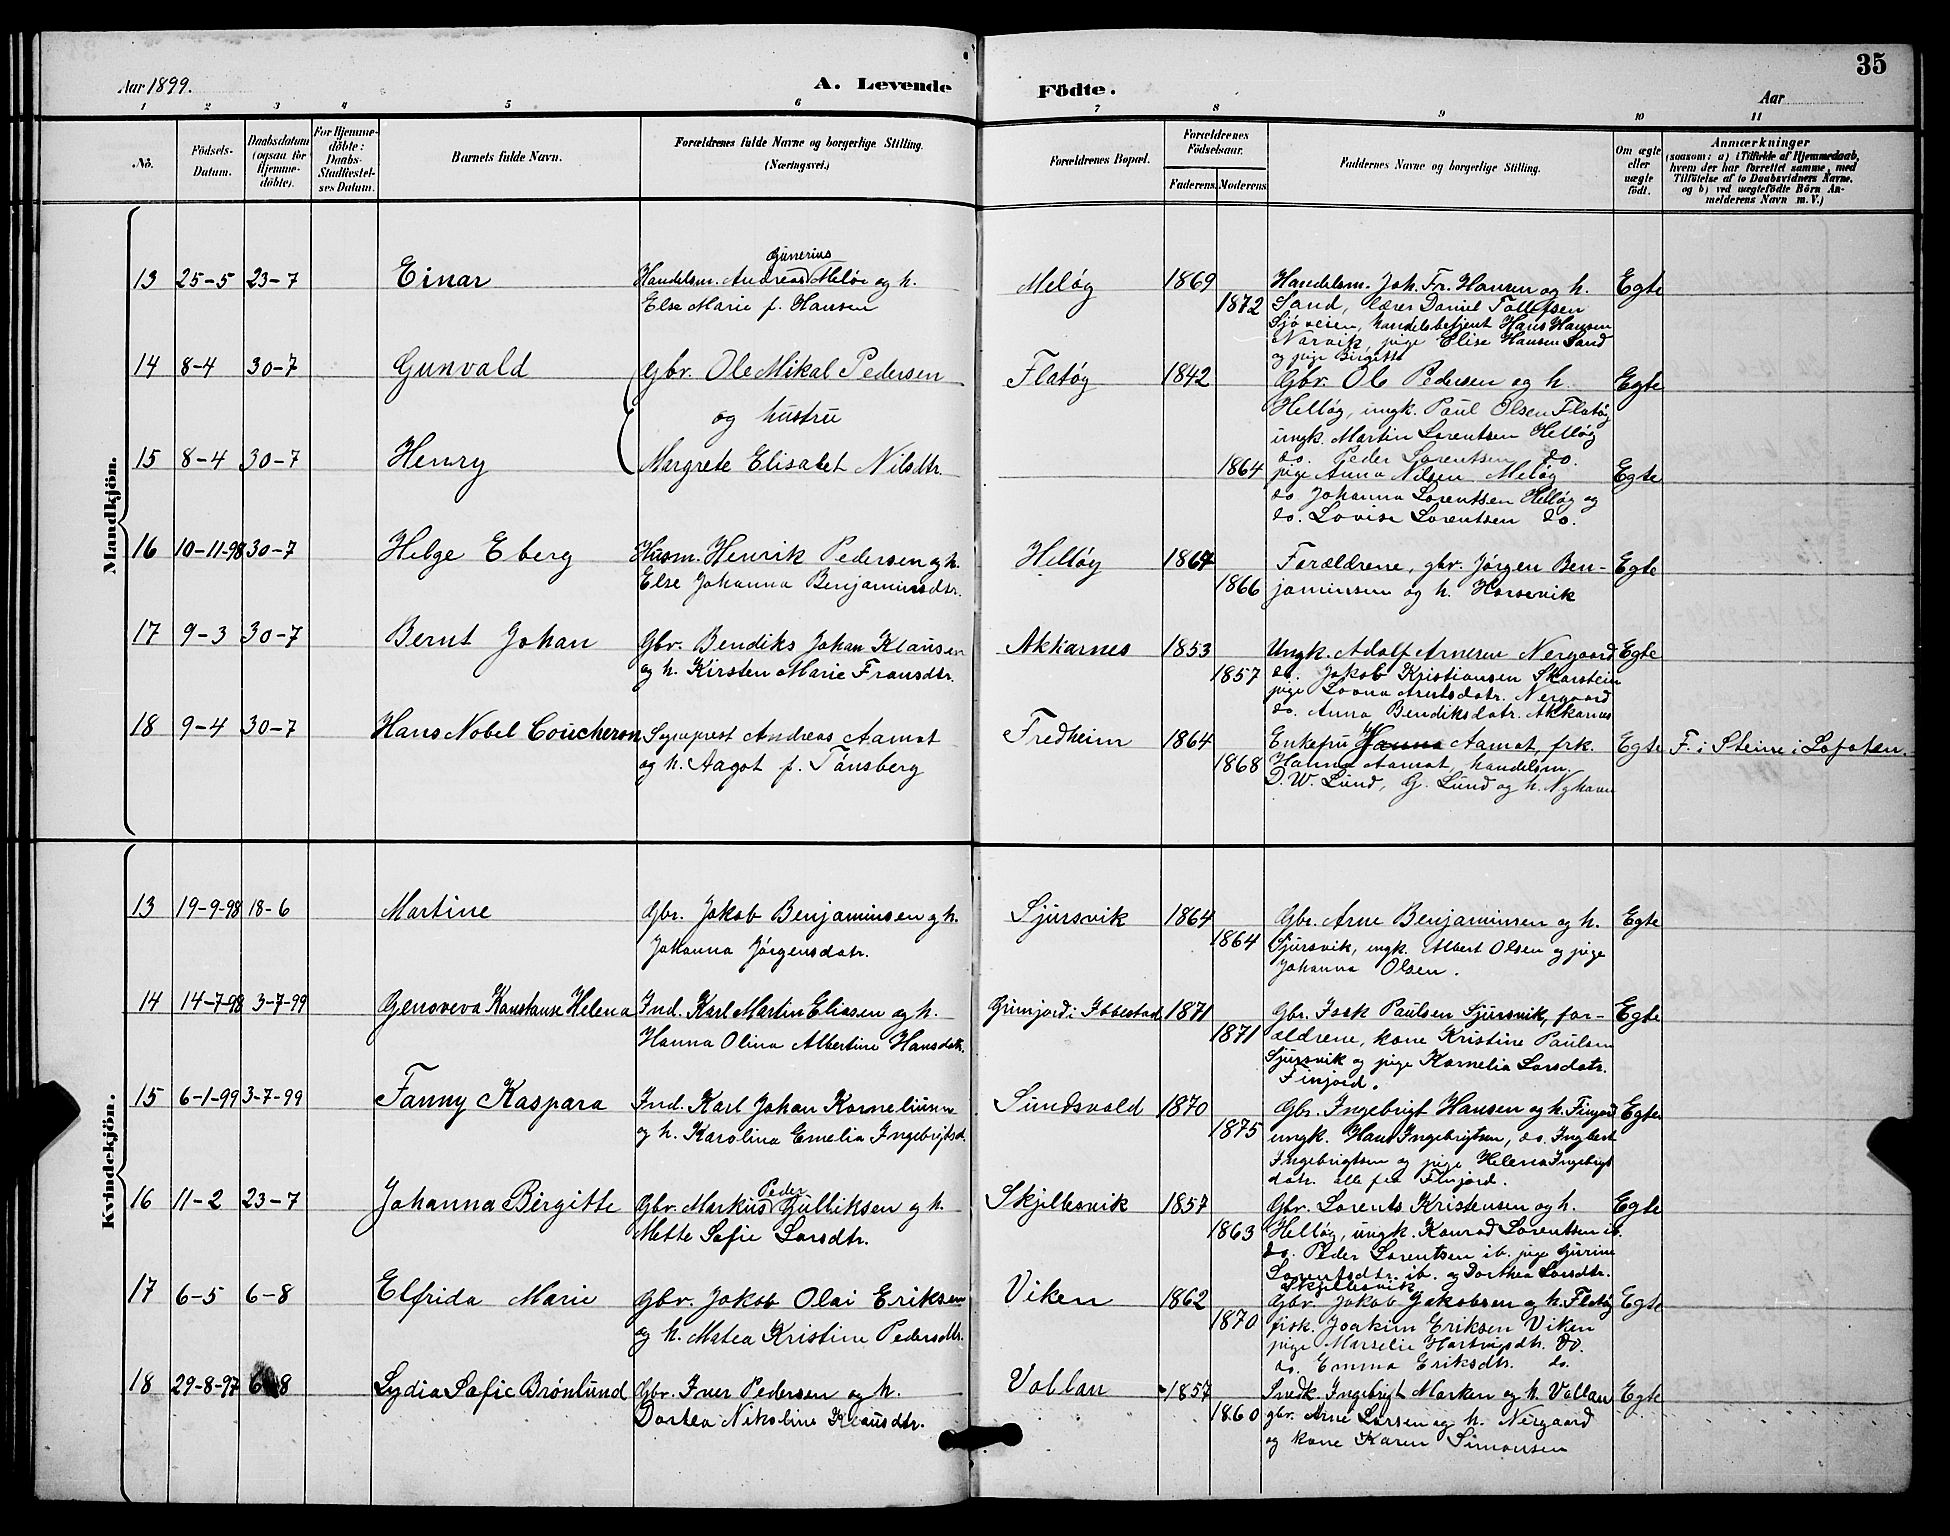 35
Aar 1899.
A. Levende Födte.
Aar
1 2 3 4 5 6 7 8 9 10 11
No.
Födsels-Datum.
Daabsdatum (ogsaa for Hjemme-döbte).
For Hjemme-döbte: Daabs-Stadfæstel-ses Datum.
Barnets fulde Navn.
Forældrenes fulde Navne og borgerlige Stilling. (Næringsvei.)
Forældrenes Bopæl.
Forældrenes Födselsaar.
Faderens. Moderens.
Faddernes Navne og borgerlige Stilling.
Om ægte eller uægte födt.
Anmærkninger
(saasom: a) i Tilfælde af Hjemmedaab, hvem der har forrettet samme, med Tilföielse af to Daabsvidners Navne, og b) ved uægtefödte Börn An-melderens Navn m. V.)
Mandkjön.
13 25-5 23-7 Einar
Handelsm. Andreas Gunerius Meløe og h.
Else Marie f. Hansen
Meløg 1869 1872
Handelsm. Joh. Fr. Hansen og h.
Sand, lærer Daniel Tollefsen
Sjøveien, handelsbetjent Hans Hansen
Narvik, pige Elise Hansen Sand
og pige Birgitte
Egte
14 8-4 30-7 Gunvald
Gbr. Ole Mikal Pedersen
og hustru
Flatøg 1842
Gbr. Ole Pedersen og h.
Helløg, ungk. Paul Olsen Flatøg
ungk. Martin Lorentsen Helløg
do. Peder Lorentsen do.
Egte
15 8-4 30-7 Henry
Margrete Elisabet Nilsdtr.
1864
pige Anna Nilsen Meløg
do Johanna Lorentsen Helløg og
do. Lovise Lorentsen do.
Egte
16 10-11-98 30-7 Helge Eberg
Husm. Henrik Pedersen og h.
Else Johanna Benjaminsdtr.
Helløg 1867 1866
Forældrene, gbr. Jørgen Ben-
jaminsen og h. Horsevik
Egte
17 9-3 30-7 Bernt Johan
Gbr. Bendiks Johan Klausen
og h. Kirsten Marie Fransdtr.
Akkarnes 1853 1857
Ungk. Adolf Arnesen Nergaard
do. Jakob Kristiansen Skarstein
pige Lovna Arntsdatr. Nergaard
do. Anna Bendiksdatr. Akkarnes
Egte
18 9-4 30-7 Hans Nobel Coucheron
Sogneprest Andreas Aamot
og h. Aagot f. Tønsberg
Fredheim 1864 1868
Enkefru Hanna Aamot, frk.
Halma Aamot, handelsm.
D. W. Lund, G. Lund og h. Nyhavn
Egte
F. i Steine i Lofoten.
Kvindekjön.
13 19-9-98 18-6 Martine
Gbr. Jakob Benjaminsen og h.
Johanna Jørgensdatr.
Sjursvik 1864 1864
Gbr. Arne Benjaminsen og h.
Sjursvik, ungk. Albert Olsen og pige
Johanna Olsen.
Egte
14 14-7-98 3-7-99 Genoveva Konstanse Helena
Ind. Karl Martin Eliasen og h.
Hanna Olina Albertine Hansdatr.
Grimjord i Ibbestad 1871 1871
Gbr. Isak Paulsen Sjursvik, for-
ældrene, kone Kristine Paulsen
Sjursvik og pige Kornelia Larsdatr.
Finjord.
Egte
15 6-1-99 3-7-99 Fanny Kaspara
Ind. Karl Johan Korneliussen
og h. Karolina Emelia Ingebrigtsd.
Sundsvold 1870 1875
Gbr. Ingebrigt Hansen og h. Finjord
ungk. Hans Ingebrigtsen, do. Ingbert
Ingebrigtsen og pige Helena Ingebrigt
datr. alle fra Finjord.
Egte
16 11-2 23-7 Johanna Birgitte
Gbr. Markus Peder Gulliksen og h.
Mette Sofie Larsdtr.
Skjellesvik 1857 1863
Gbr. Lorents Kristensen og h.
Helløg, ungk. Konrad Lorentsen ib.
do. Peder Lorentsen ib. pige Gurine
Lorentsdtr. ib. og Dorthea Larsdtr.
Skjellesvik
Egte
17 6-5 6-8 Elfrida Marie
Gbr. Jakob Olai Eriksen
og h. Matea Kristine Pedersdtr.
Viken 1862 1870
Gbr. Jakob Jakobsen og h. Flatøg
fisk. Joakim Eriksen Viken
pige Marselie Hartvigsdtr. do.
do. Emma Eriksdtr. do.
Egte
18 29-8-97 6-8 Lydia Sofie Brønlund
Gbr. Iver Pedersen og h.
Dortea Nikoline Klausdtr.
Vollan 1857 1860
Snedk. Ingebrigt Marken og h. Vollan
gbr. Arne Larsen og h. Nergaard
og kone Karen Simonsen
Egte